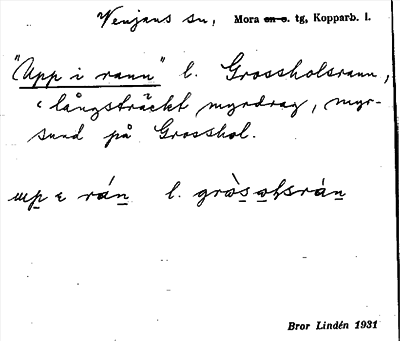 Venjans sn, Mora en o. tg, Kopparb. l.
"Upp i rann" l. Grossholsrann,
långsträckt myrdrag, myr-
sund på Grosshol.
up ɛ rán l. gròs oɫsrán
Bror Lindén 1931